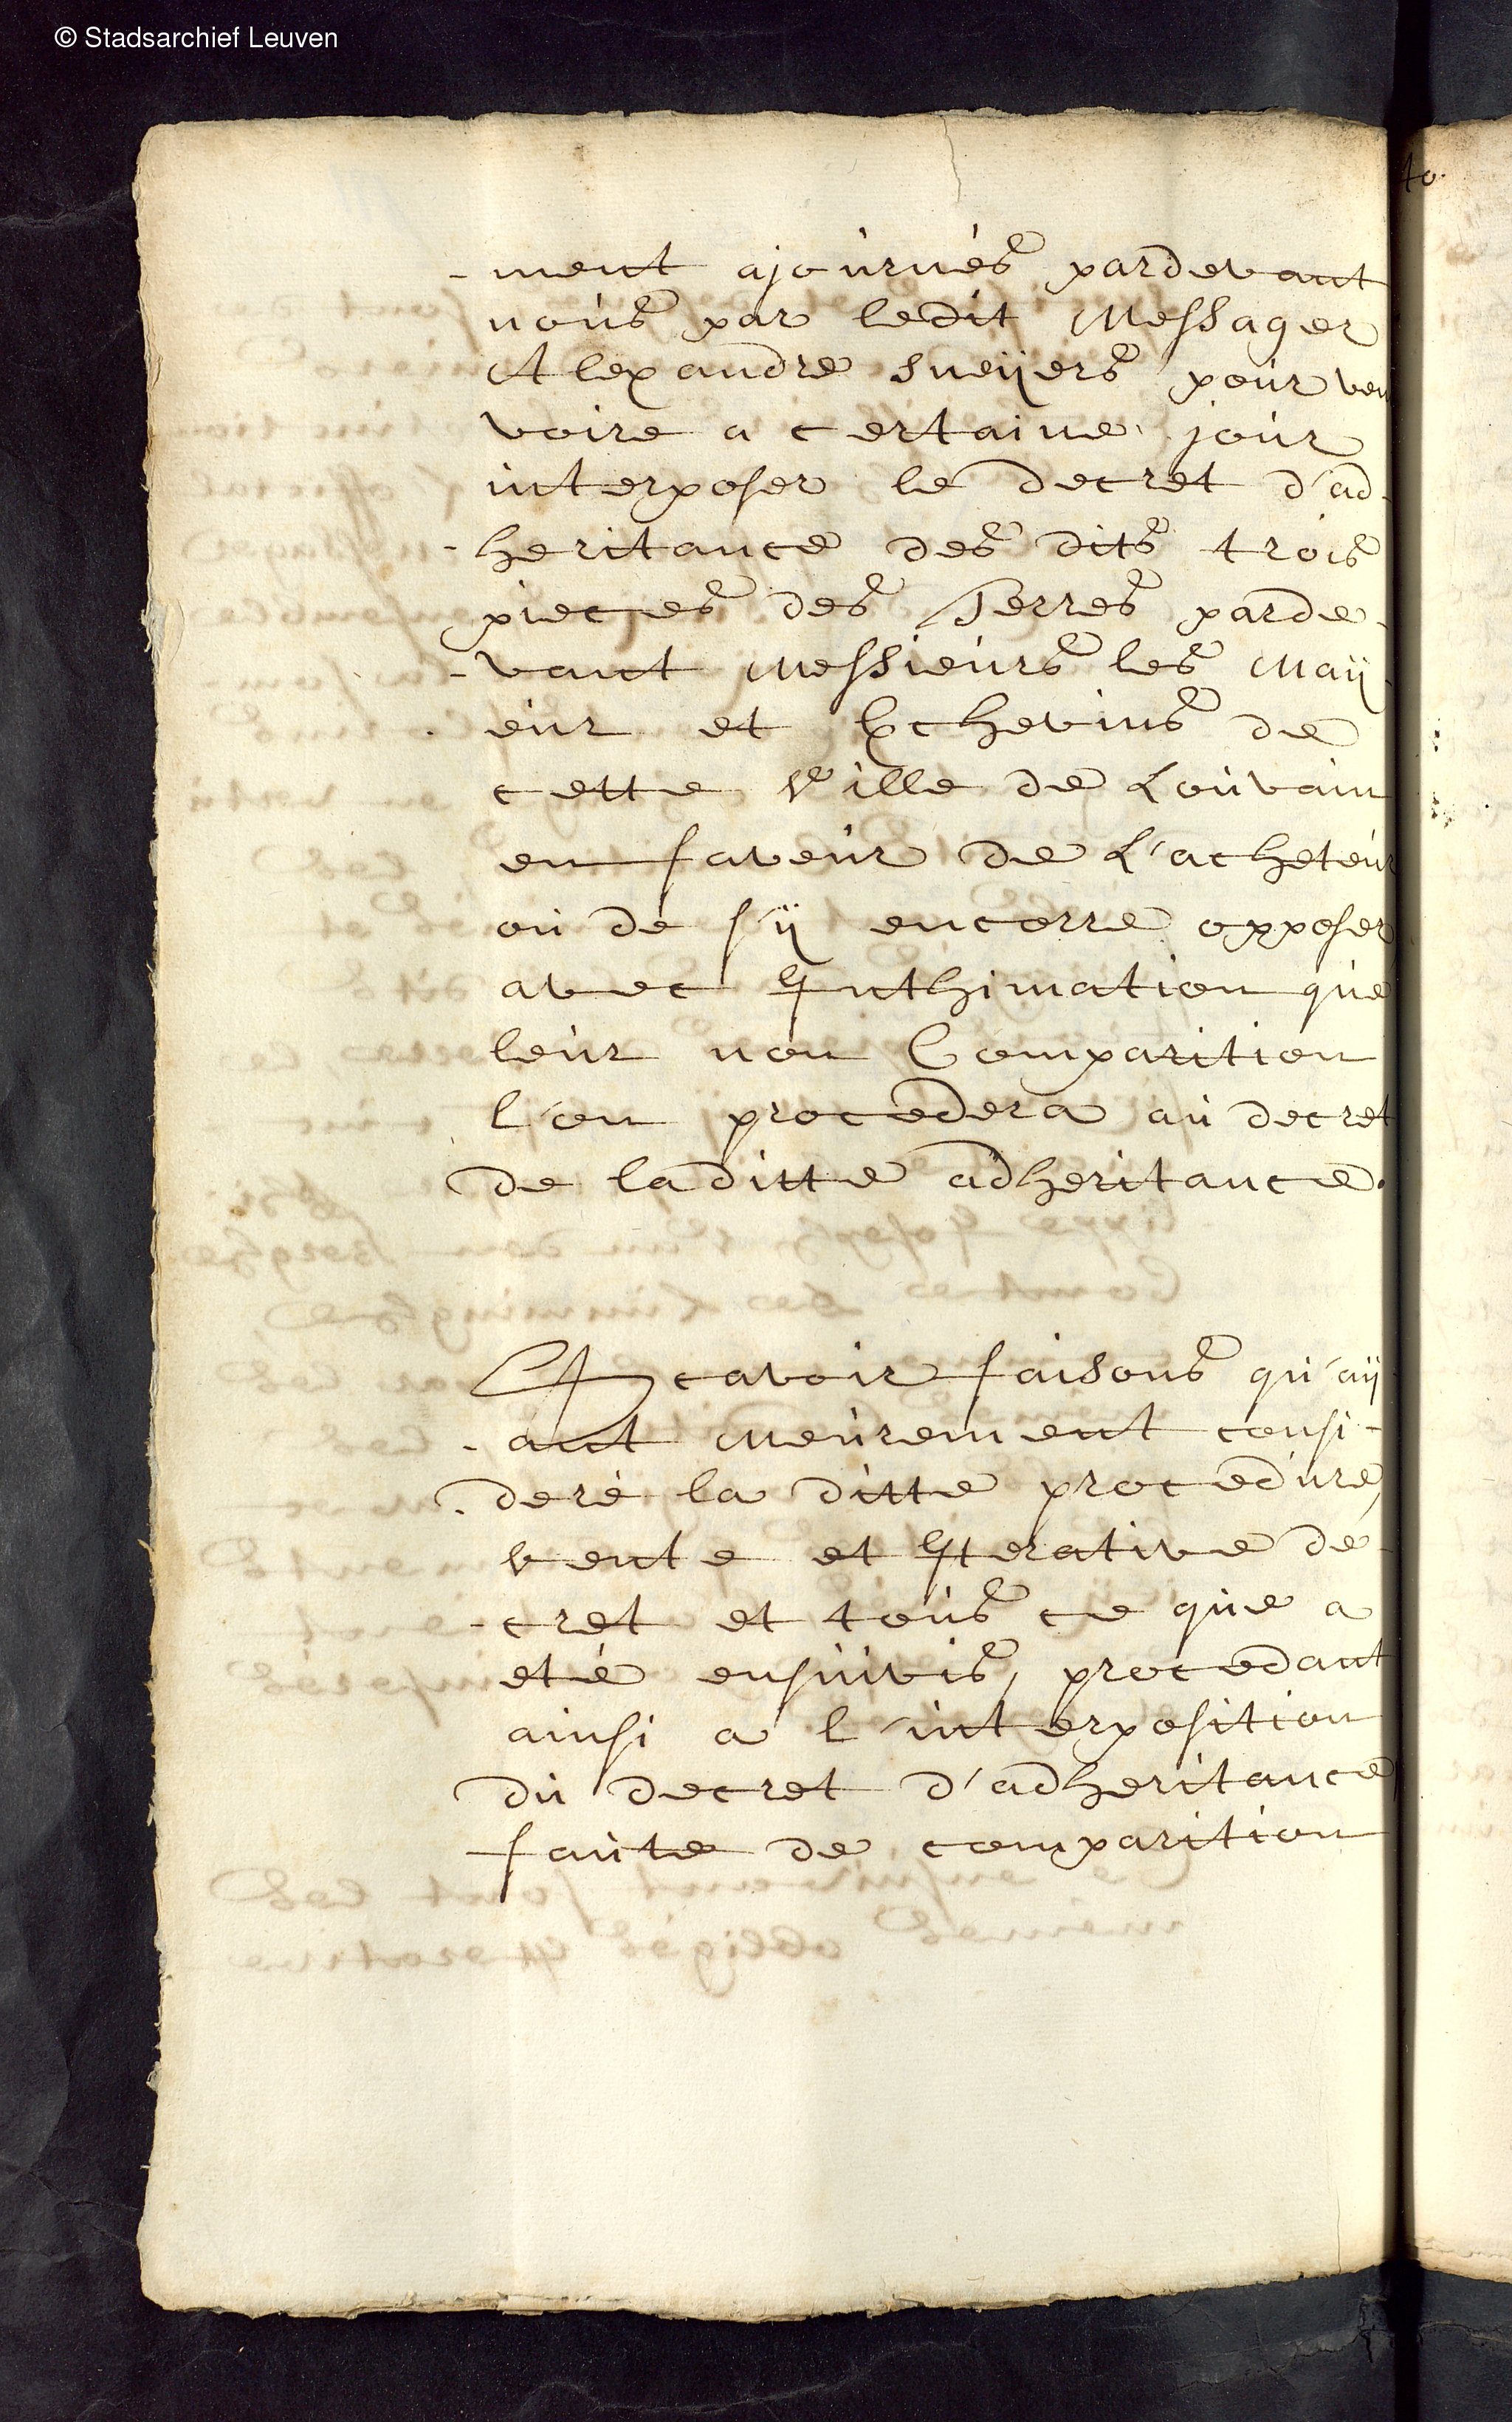 © Stadsarchief Leuven
40
-ment ajoúrnés pardevant
noús par ledit Messager
Alexandre Sneÿers poúr ven
voire a certaine joúr
interposer le decret d'ad-
-heritance des dits trois
pieces des Terres parde-
-vant Messieúrs les Maÿ-
-eúr et Echevins de
cette Ville de Loúvain
en faveúr de L'acheteúr
oú de s'ÿ encorre opposer
avec Inthimation qúe
leúr non Comparition
l'on procedera aú decret
de laditte adheritance.
Scavoir faisons qú'aÿ-
-ant Meúrement consi-
-deré la ditte procedúre,
vente et Iterative dé-
-cret et toús ce qúe a
eté ensúivis, procedant
ainsi a l'interposition
dú decret d'adheritance,
faúte de comparition